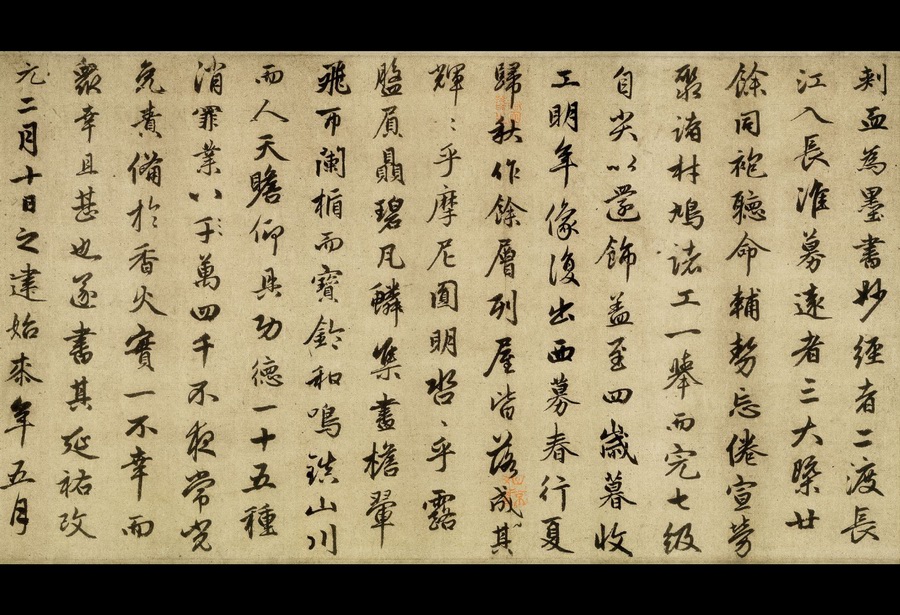 刺血為墨書妙經者二渡長
江入長淮募遠者三大槩廿
餘同袍聽命輔勢忘倦宣勞
聚諸材鳩諸工一舉而完七級
自尖以還飾盖至四歲暮收
工明年像復出西募春行夏
歸秋作餘層列屋皆落成其
輝〻乎摩尼圓明呇〻乎露
盤眉贔碧凡鱗集畫檐翬
飛而闌楯而寶鈴和鳴鎮山川
而人天瞻仰具功德一十五種
消罪業八万萬四千不夜常光
免責備於香火實一不幸而
衆幸且甚也遂書其延祐改
元二月十日之建始來年五月